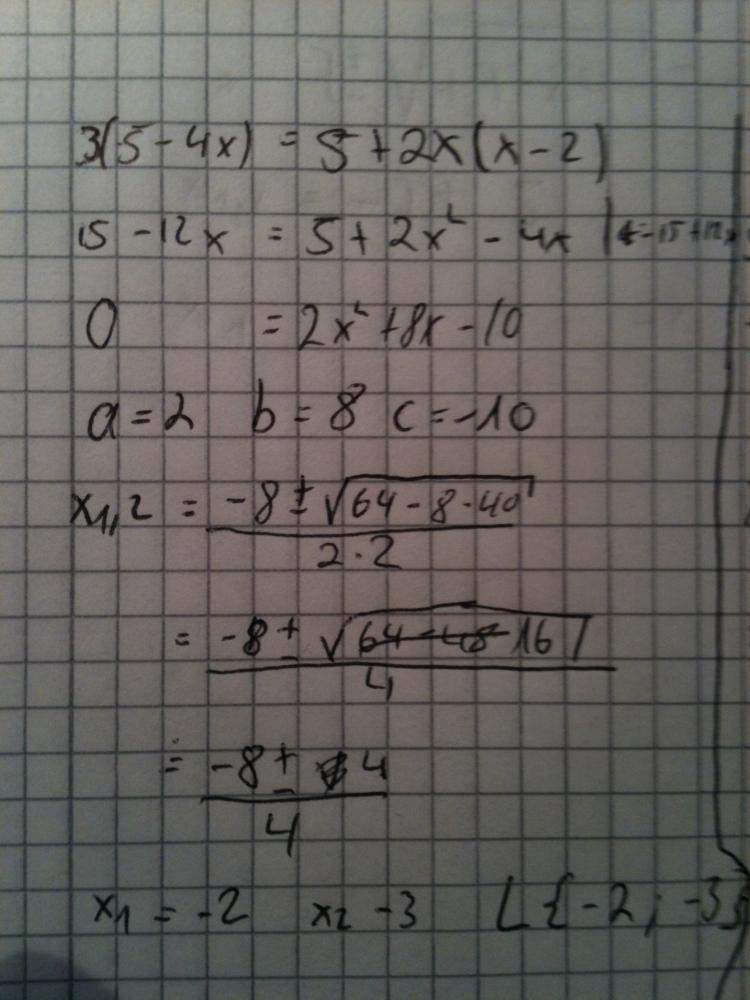 3(5 - 4x) = 5 + 2x(x - 2)
15 - 12x = 5 + 2x² - 4x | -15 + 12x
0 = 2x² + 8x - 10
a = 2 b = 8 c = -10
x1,2 = (-8 ± √(64 - 8 · 40)) / (2 · 2)
= (-8 ± √(64 - 48 16)) / 4
= (-8 ± 4) / 4
x1 = -2 x2 - 3 L {-2 ; -3}